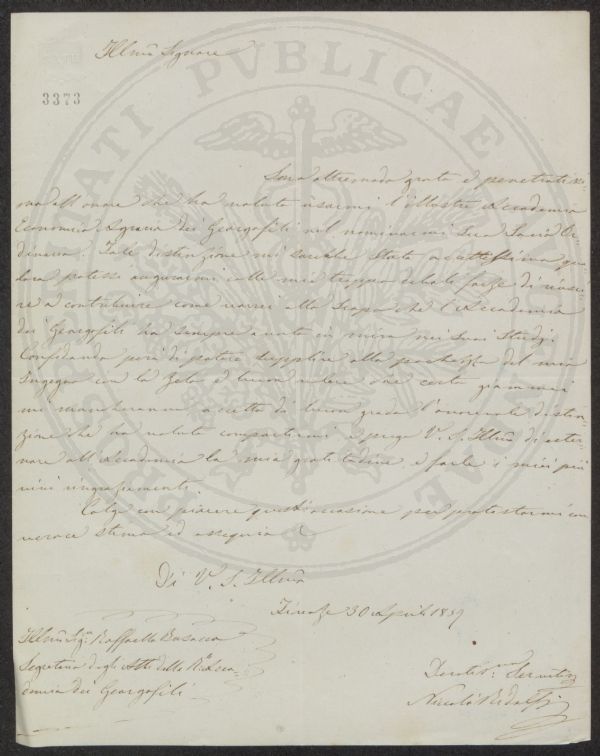 Illmo Signore
3373
Sono oltremodo grato e penetratissi-
mo all'onore che ha voluto usarmi l'illustre Accademia
Economico Agraria dei Georgofili nel nominarmi Suo Socio Or-
dinario. Tale distinzione mi sarebbe stata accettissima qua-
lora potessi augurarmi colle mie troppo deboli forze di riusci-
re a contribuire come vorrei allo scopo che l'Accademia
dei Georgofili ha sempre avuto in mira nei suoi Studj.
Confidando però di potere supplire alla pochezza del mio
Ingegno con lo Zelo e buon volere che certo giammai
mi mancheranno accetto di buon grado l'onorevole distin-
zione che ha voluto compartirmi e prego V. S. Illma di ester-
nare all'Accademia la mia gratitudine e farle i miei più
vivi ringraziamenti.
Colgo con piacere quest'occasione per protestarmi con
verace stima ed ossequio
Di V. S. Illma
Firenze 30 Aprile 1859
Illmo Sig. Raffaello Busacca
Segretario degli Atti della R. Acca-
demia dei Georgofili
Devotis. Servitor
Niccolò Ridolfi
PROSPERITATI PUBLICAE AUGENDAE